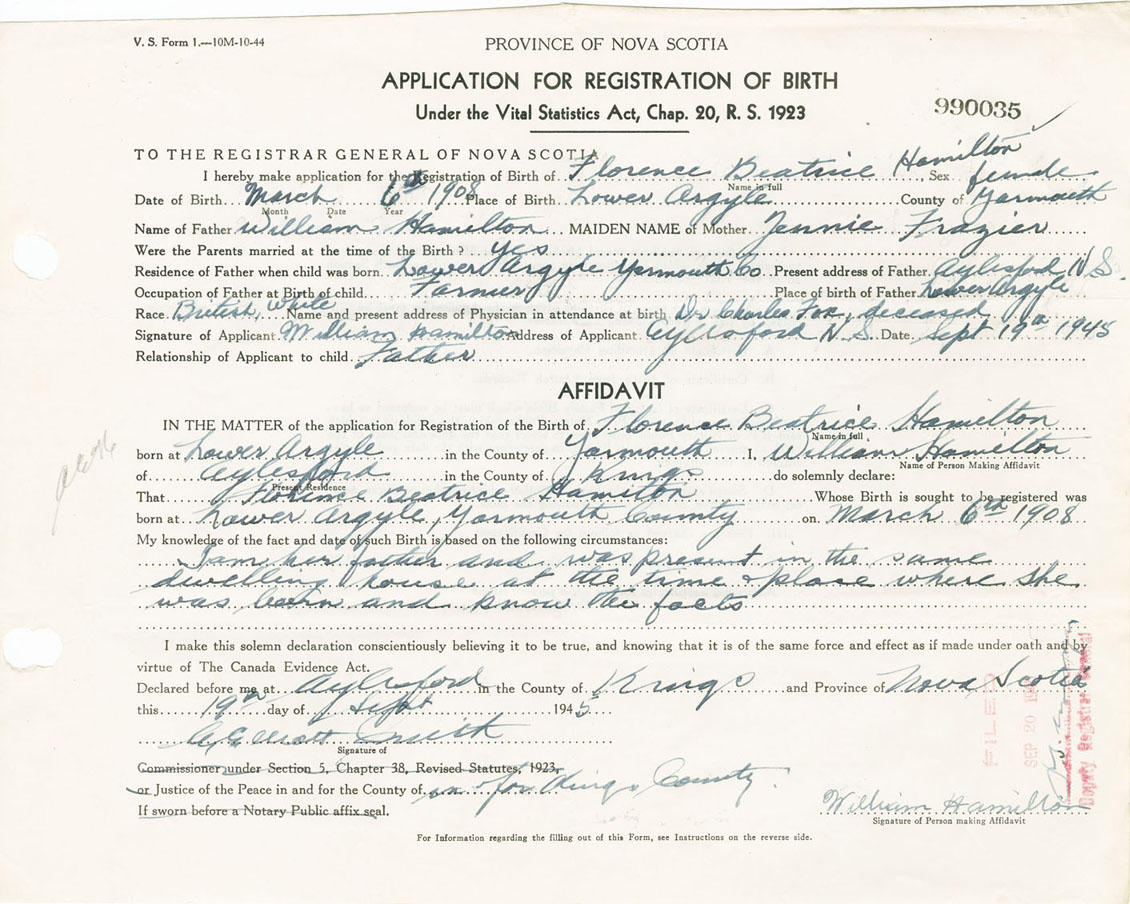 V. S. Form 1.—10M-10-44
PROVINCE OF NOVA SCOTIA
APPLICATION FOR REGISTRATION OF BIRTH
Under the Vital Statistics Act, Chap. 20, R. S. 1923
990035
TO THE REGISTRAR GENERAL OF NOVA SCOTIA
I hereby make application for the Registration of Birth of Florence Beatrice Hamilton, Sex female
Name in full
Date of Birth March 6th 1908 Place of Birth Lower Argyle County of Yarmouth
Month Date Year
Name of Father William Hamilton MAIDEN NAME of Mother Jennie Frazier
Were the Parents married at the time of the Birth? Yes
Residence of Father when child was born Lower Argyle Yarmouth Co Present address of Father Aylesford N S.
Occupation of Father at Birth of child Farmer Place of birth of Father Lower Argyle
Race British, White Name and present address of Physician in attendance at birth Dr Charles Fox, deceased
Signature of Applicant William Hamilton Address of Applicant Aylesford N. S. Date Sept 19th 1945
Relationship of Applicant to child Father
AFFIDAVIT
IN THE MATTER of the application for Registration of the Birth of Florence Beatrice Hamilton
Name in full
born at Lower Argyle in the County of Yarmouth I, William Hamilton
Name of Person Making Affidavit
of Aylesford in the County of Kings do solemnly declare:
Present Residence
That Florence Beatrice Hamilton Whose Birth is sought to be registered was
born at Lower Argyle, Yarmouth County on March 6th 1908
My knowledge of the fact and date of such Birth is based on the following circumstances:
I am her father and was present in the same
dwelling house at the time & place where she
was born and know the facts
I make this solemn declaration conscientiously believing it to be true, and knowing that it is of the same force and effect as if made under oath and by
virtue of The Canada Evidence Act.
Declared before me at Aylesford in the County of Kings and Province of Nova Scotia
this 19th day of Sept 1945
Elliott Smith
Signature of
Commissioner under Section 5, Chapter 38, Revised Statutes, 1923,
or Justice of the Peace in and for the County of in & for Kings County.
If sworn before a Notary Public affix seal.
William Hamilton
Signature of Person making Affidavit
For Information regarding the filling out of this Form, see Instructions on the reverse side.
FILED
SEP 20
Deputy Registrar General